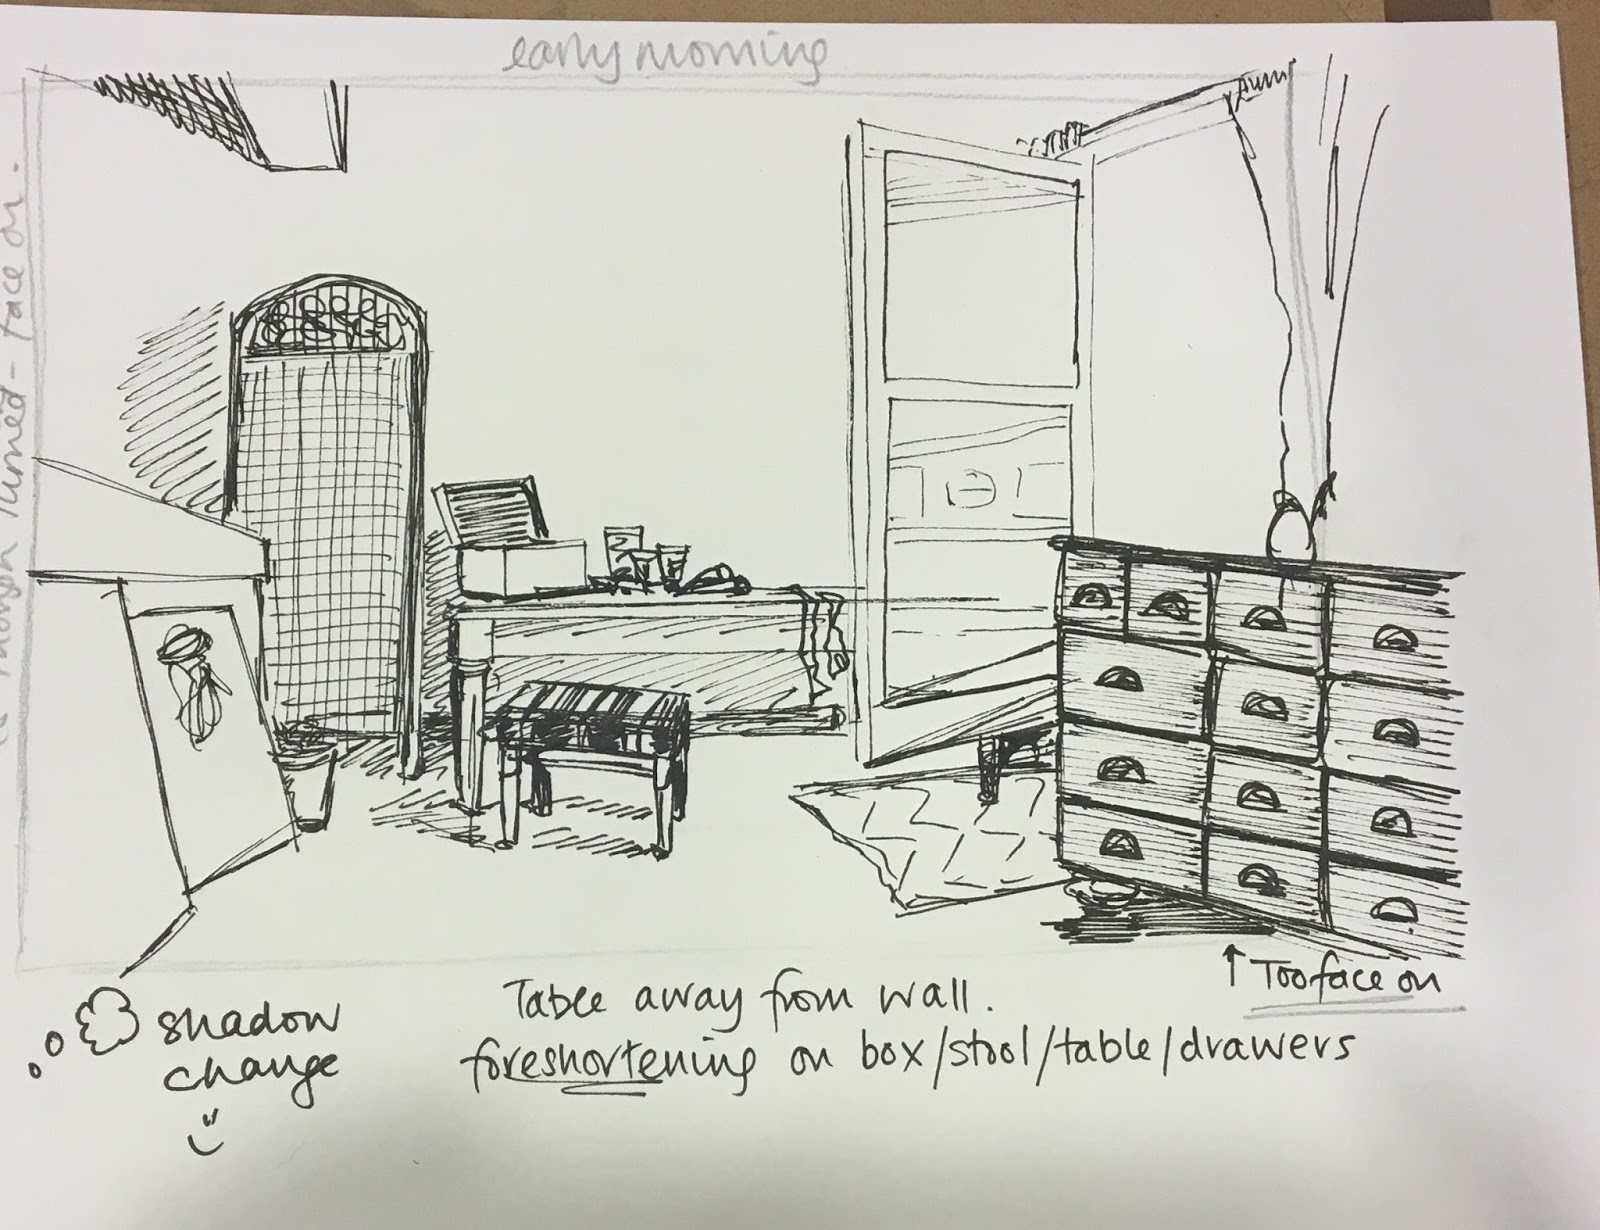 early morning
turned - face on.
↑ Too face on
shadow
change
Table away from wall.
foreshortening on box/stool/table/drawers